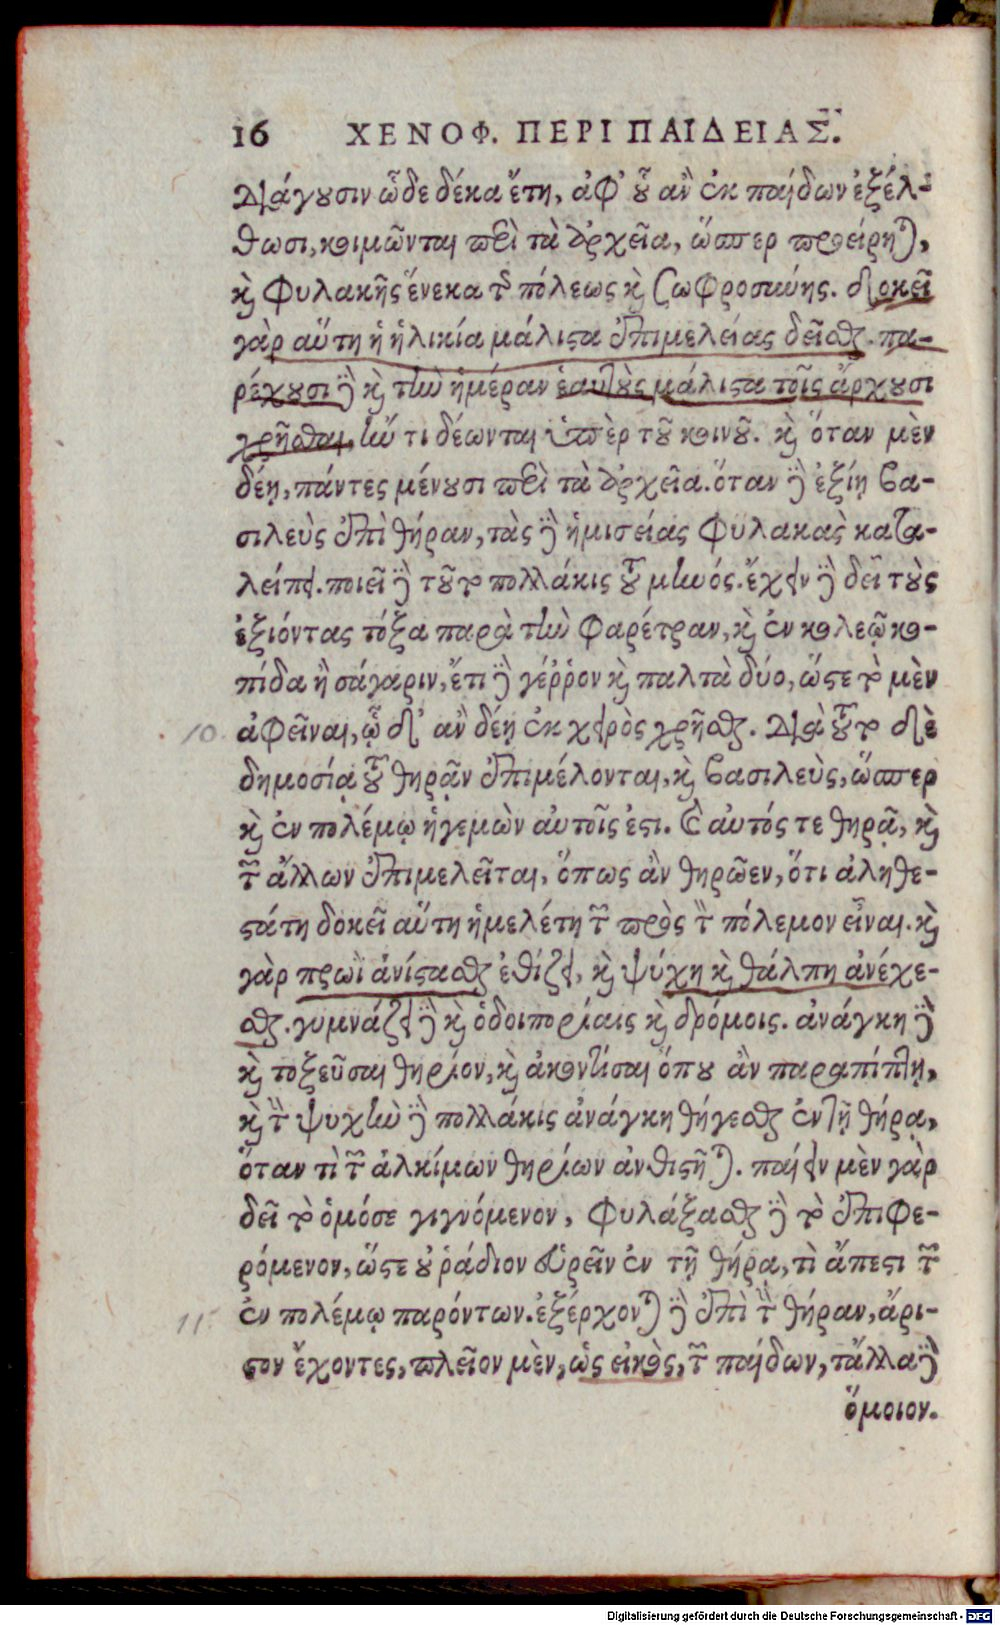 16 ΧΕΝΟΦ. ΠΕΡΙ ΠΑΙΔΕΙΑΣ.
Διάγουσιν ὧδε δέκα ἔτη, ἀφ' οὗ ἂν ἐκ παίδων ἐξέλ-
θωσι, κοιμῶνται περὶ τὰ ἀρχεῖα, ὥσπερ προείρηται,
καὶ φυλακῆς ἕνεκα τῆς πόλεως καὶ σωφροσύνης. δοκεῖ
γὰρ αὕτη ἡ ἡλικία μάλιστα ἐπιμελείας δεῖσθαι. πα-
ρέχουσι δὲ καὶ τὴν ἡμέραν ἑαυτοὺς μάλιστα τοῖς ἄρχουσι
χρῆσθαι, ἤν τι δέωνται ὑπὲρ τοῦ κοινοῦ. καὶ ὅταν μὲν
δέῃ, πάντες μένουσι περὶ τὰ ἀρχεῖα. ὅταν δὲ ἐξίῃ βα-
σιλεὺς ἐπὶ θήραν, τὰς δὲ ἡμισείας φυλακὰς κατα-
λείπει. ποιεῖ δὲ τοῦτο πολλάκις τοῦ μηνός. ἔχειν δὲ δεῖ τοὺς
ἐξιόντας τόξα παρὰ τὴν φαρέτραν, καὶ ἐν κολεῷ κο-
πίδα ἢ σάγαριν, ἔτι δὲ γέῤῥον καὶ παλτὰ δύο, ὥστε τὸ μὲν
10. ἀφεῖναι, ᾧ δ' ἂν δέῃ ἐκ χειρὸς χρῆσθαι. Διὰ τοῦτο δὲ
δημοσίᾳ τοῦ θηρᾷν ἐπιμέλονται, καὶ βασιλεὺς, ὥσπερ
καὶ ἐν πολέμῳ ἡγεμὼν αὐτοῖς ἐστι. καὶ αὐτός τε θηρᾷ, καὶ
τῶν ἄλλων ἐπιμελεῖται, ὅπως ἂν θηρῶεν, ὅτι ἀληθε-
στάτη δοκεῖ αὕτη ἡ μελέτη τῶν πρὸς τὸν πόλεμον εἶναι. καὶ
γὰρ πρωῒ ἀνίστασθαι ἐθίζει, καὶ ψύχη καὶ θάλπη ἀνέχε-
σθαι. γυμνάζει δὲ καὶ ὁδοιπορίαις καὶ δρόμοις. ἀνάγκη δὲ
καὶ τοξεῦσαι θηρίον, καὶ ἀκοντίσαι ὅπου ἂν παραπίπτῃ,
καὶ τὴν ψυχὴν δὲ πολλάκις ἀνάγκη θήγεσθαι ἐν τῇ θήρᾳ,
ὅταν τὶ τῶν ἀλκίμων θηρίων ἀνθιστῆται. παίειν μὲν γὰρ
δεῖ τὸ ὁμόσε γιγνόμενον, φυλάξασθαι δὲ τὸ ἐπιφε-
ρόμενον, ὥστε οὐ ῥάδιον εὑρεῖν ἐν τῇ θήρᾳ, τὶ ἄπεστι τῶν
11. ἐν πολέμῳ παρόντων. ἐξέρχονται δὲ ἐπὶ τὴν θήραν, ἄρι-
στον ἔχοντες, πλεῖον μὲν, ὡς εἰκὸς, τῶν παίδων, τἄλλα δὲ
ὅμοιον.
Digitalisierung gefördert durch die Deutsche Forschungsgemeinschaft - DFG